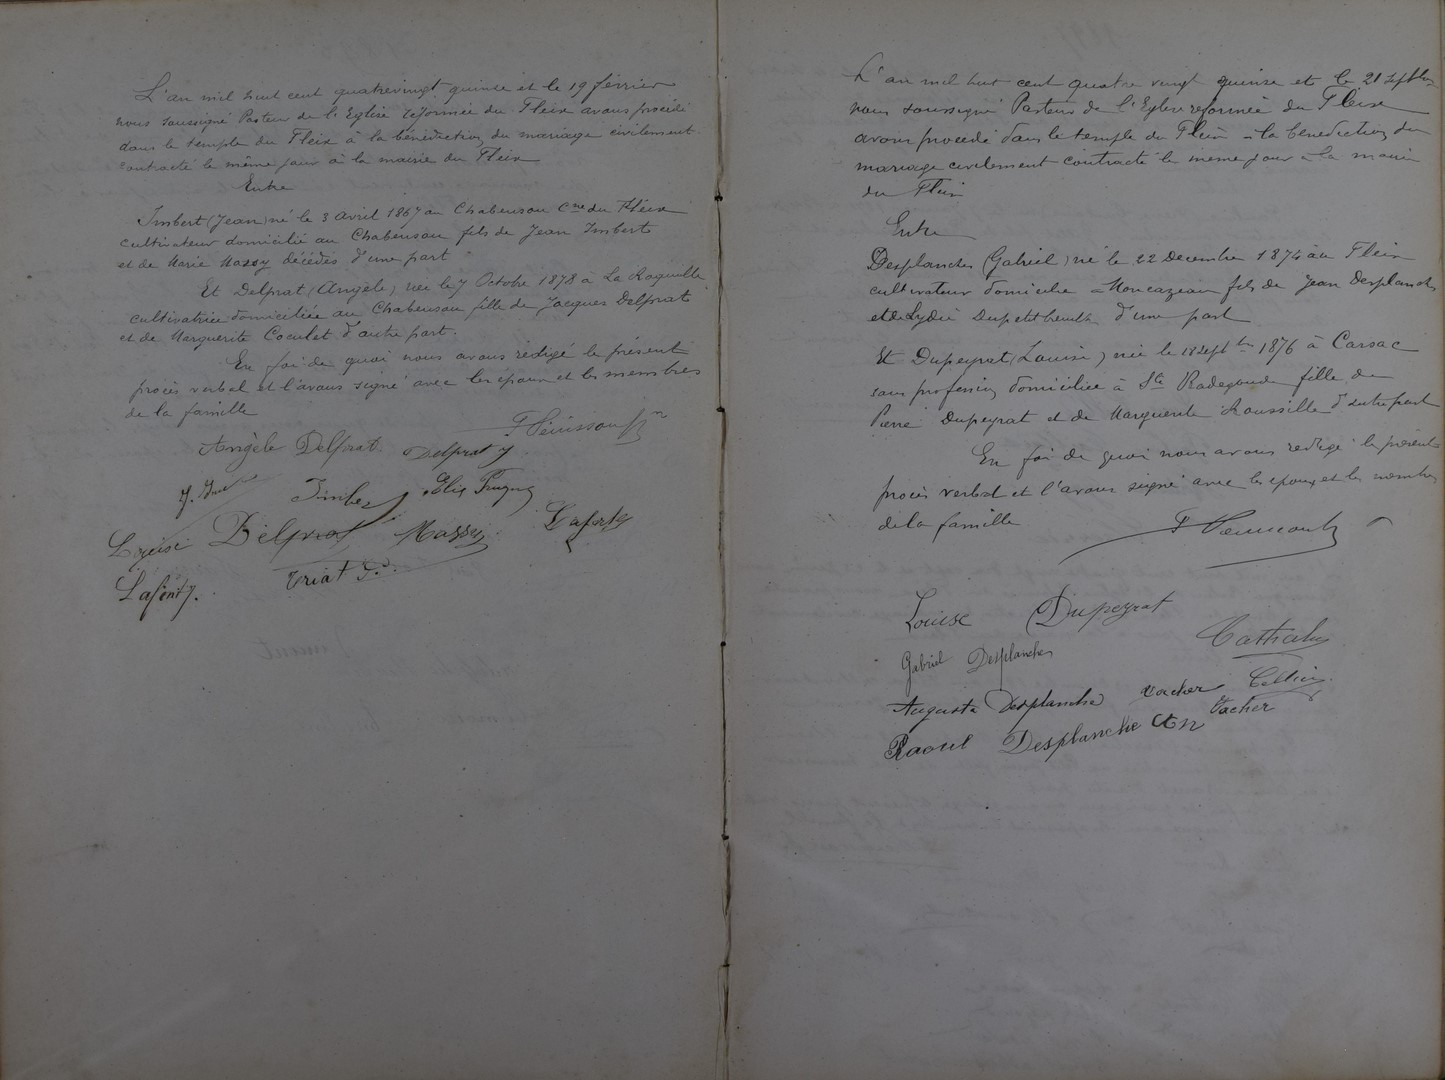 L'an mil huit cent quatrevingt quinze et le 19 février
nous soussigné Pasteur de l'Eglise réformée du Fleix avons procédé
dans le temple du Fleix à la bénédiction du mariage civilement
contracté le même jour à la mairie du Fleix
Entre
Imbert (Jean) né le 3 Avril 1867 au Chabensou Cne du Fleix
cultivateur domicilié au Chabensou fils de Jean Imbert
et de Marie Massy décédés d'une part
Et Delprat (Angèle) née le 7 Octobre 1878 à La Roquille
cultivatrice domiciliée au Chabensou fille de Jacques Delprat
et de Marguerite Coculet d'autre part.
En foi de quoi nous avons rédigé le présent
procès verbal et l'avons signé avec les époux et les membres
de la famille
Angèle Delprat Delprat J
Imbert Elie
Louise Delprat Massy Laforte
Triat
L'an mil huit cent quatre vingt quinze et le 21 septbre
nous soussigné Pasteur de l'Eglise reformée du Fleix
avons procédé dans le temple du Fleix à la benediction du
mariage civilement contracté le meme jour à la mairie
du Fleix
Entre
Desplanches (Gabriel) né le 22 Decembre 1874 au Fleix
cultivateur domicilié à Moncazeau fils de Jean Desplanches
et de Lydie d'une part
Et Dupeyrat (Louise) née le 18 septbre 1876 à Carsac
sans profession domiciliée à Ste Radegonde fille de
Pierre Dupeyrat et de Marguerite Roussille d'autre part
En foi de quoi nous avons redigé le présent
procès verbal et l'avons signé avec les epoux et les membres
de la famille
Louise Dupeyrat
Gabriel Desplanches
Augusta Desplanche Vacher
Raoul Desplanche Vacher